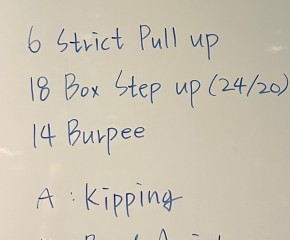 6 Strict Pull up
18 Box Step up (24/20)
14 Burpee
A : Kipping